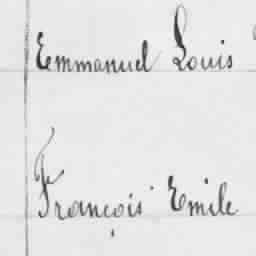 Emmanuel Louis
François Emile